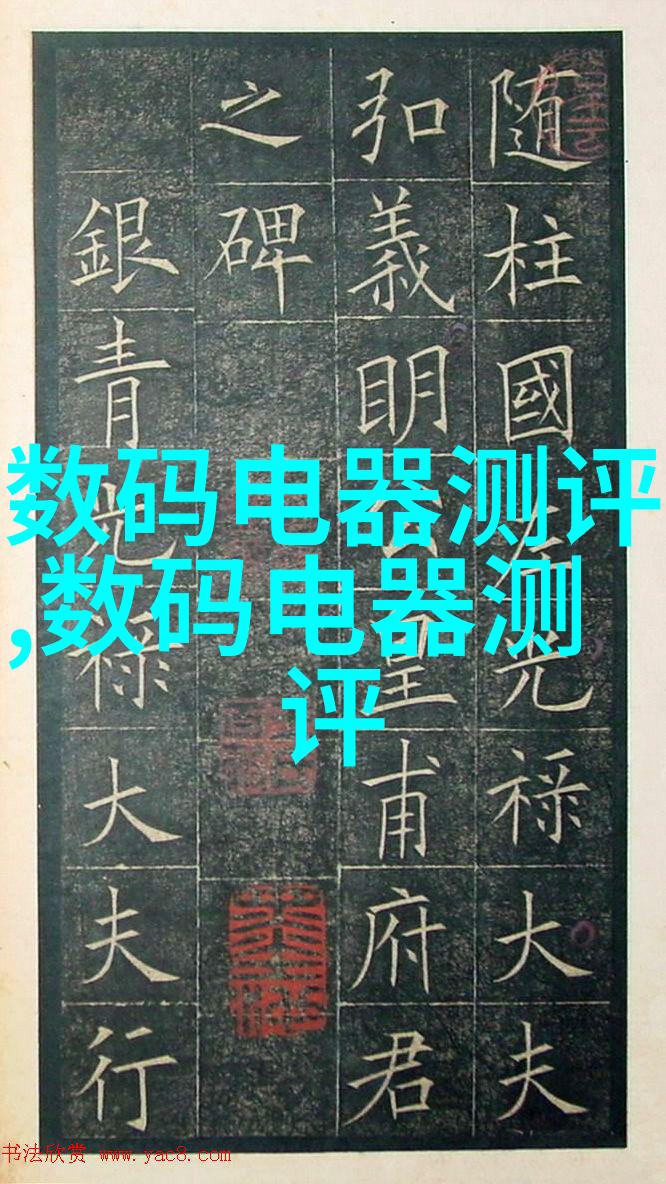 随柱國左光禄大夫
弘義明公皇甫府君
之碑
銀青光禄大夫行
数码电器测评
,数码电器测
评
书法欣赏 www.yac8.com